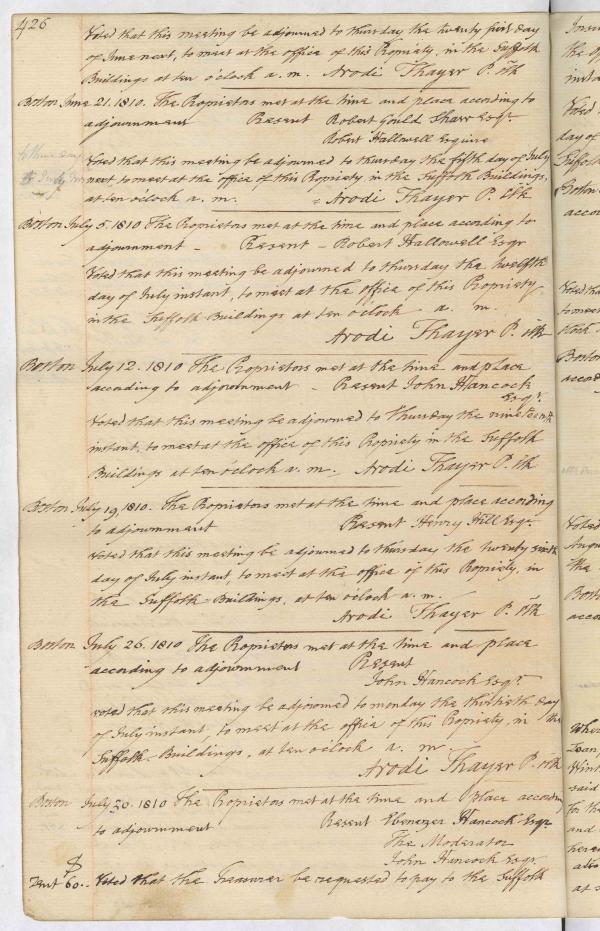 426
Voted that this meeting be adjourned to thursday the twenty first day
of June next, to meet at the office of this Propriety, in the Suffolk
Buildings at ten o'clock a. m. Arodi Thayer P. Clk
Boston June 21. 1810. The Proprietors met at the time and place according to
adjournment Present Robert Gould Shaw Esqr.
Robert Hallowell Esquire
Voted that this meeting be adjourned to thursday the fifth day of July
next to meet at the office of this Propriety in the Suffolk Buildings,
at ten o'clock a. m. Arodi Thayer P. Clk
Boston July 5. 1810 The Proprietors met at the time and place according to
adjournment - Present - Robert Hallowell Esqr
Voted that this meeting be adjourned to thursday the twelfth
day of July instant, to meet at the office of this Propriety
in the Suffolk Buildings at ten o'clock a. m.
Arodi Thayer P. Clk
Boston July 12. 1810 The Proprietors met at the time and place
according to adjournment - Present John Hancock
Esqr.
Voted that this meeting be adjourned to Thursday the nineteenth
instant, to meet at the office of this Propriety in the Suffolk
Buildings at ten o'clock a. m. Arodi Thayer P. Clk
Boston July 19, 1810. The Proprietors met at the time and place according
to adjournment Present Henry Hill Esqr.
Voted that this meeting be adjourned to thursday the twenty sixth
day of July instant, to meet at the office of this Propriety, in
the Suffolk Buildings, at ten o'clock a. m.
Arodi Thayer P. Clk
Boston July 26. 1810 The Proprietors met at the time and place
according to adjournment Present
John Hancock Esqr.
Voted that this meeting be adjourned to monday the thirtieth day
of July instant, to meet at the office of this Propriety, in the
Suffolk Buildings, at ten o'clock a. m
Arodi Thayer P. Clk
Boston July 30. 1810 The Proprietors met at the time and place according
to adjournment Present Ebenezer Hancock Esqr
The Moderator
John Hancock Esqr.
$
60.. Voted that the Treasurer be requested to pay to the Suffolk